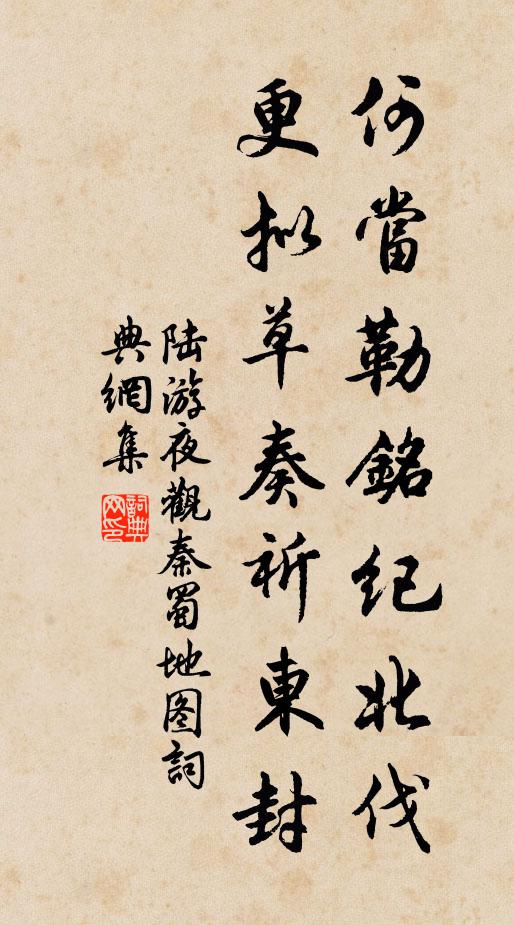 何當勒銘紀北伐
更拟草奏祈東封
陆游夜觀秦蜀地图詞
典網集
詞典
网印